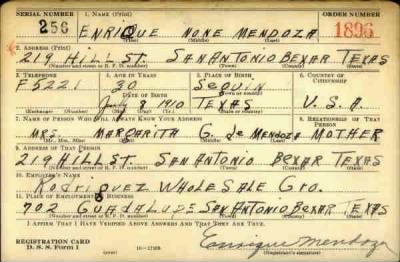 SERIAL NUMBER 1. NAME (Print) ORDER NUMBER
256 ENRIQUE NONE MENDOZA 1896
(First) (Middle) (Last)
2. ADDRESS (Print)
219 HILL ST. SAN ANTONIO BEXAR TEXAS
(Number and street or R. F. D. number) (Town) (County) (State)
3. TELEPHONE 4. AGE IN YEARS 5. PLACE OF BIRTH 6. COUNTRY OF CITIZENSHIP
F5221 30 SEGUIN
DATE OF BIRTH (Town or county)
July 8 1910 TEXAS U.S.A.
(Exchange) (Number) (Mo.) (Day) (Yr.) (State or country)
7. NAME OF PERSON WHO WILL ALWAYS KNOW YOUR ADDRESS 8. RELATIONSHIP OF THAT PERSON
MRS. MARGARITA G. de MENDOZA MOTHER
(Mr., Mrs., Miss) (First) (Middle) (Last)
9. ADDRESS OF THAT PERSON
219 HILL ST. SAN ANTONIO BEXAR TEXAS
(Number and street or R. F. D. number) (Town) (County) (State)
10. EMPLOYER'S NAME
RODRIGUEZ WHOLESALE GRO.
11. PLACE OF EMPLOYMENT OR BUSINESS
702 GUADALUPE SAN ANTONIO BEXAR TEXAS
(Number and street or R. F. D. number) (Town) (County) (State)
I AFFIRM THAT I HAVE VERIFIED ABOVE ANSWERS AND THAT THEY ARE TRUE.
REGISTRATION CARD Enrique Mendoza
D. S. S. Form 1 (Registrant's signature)